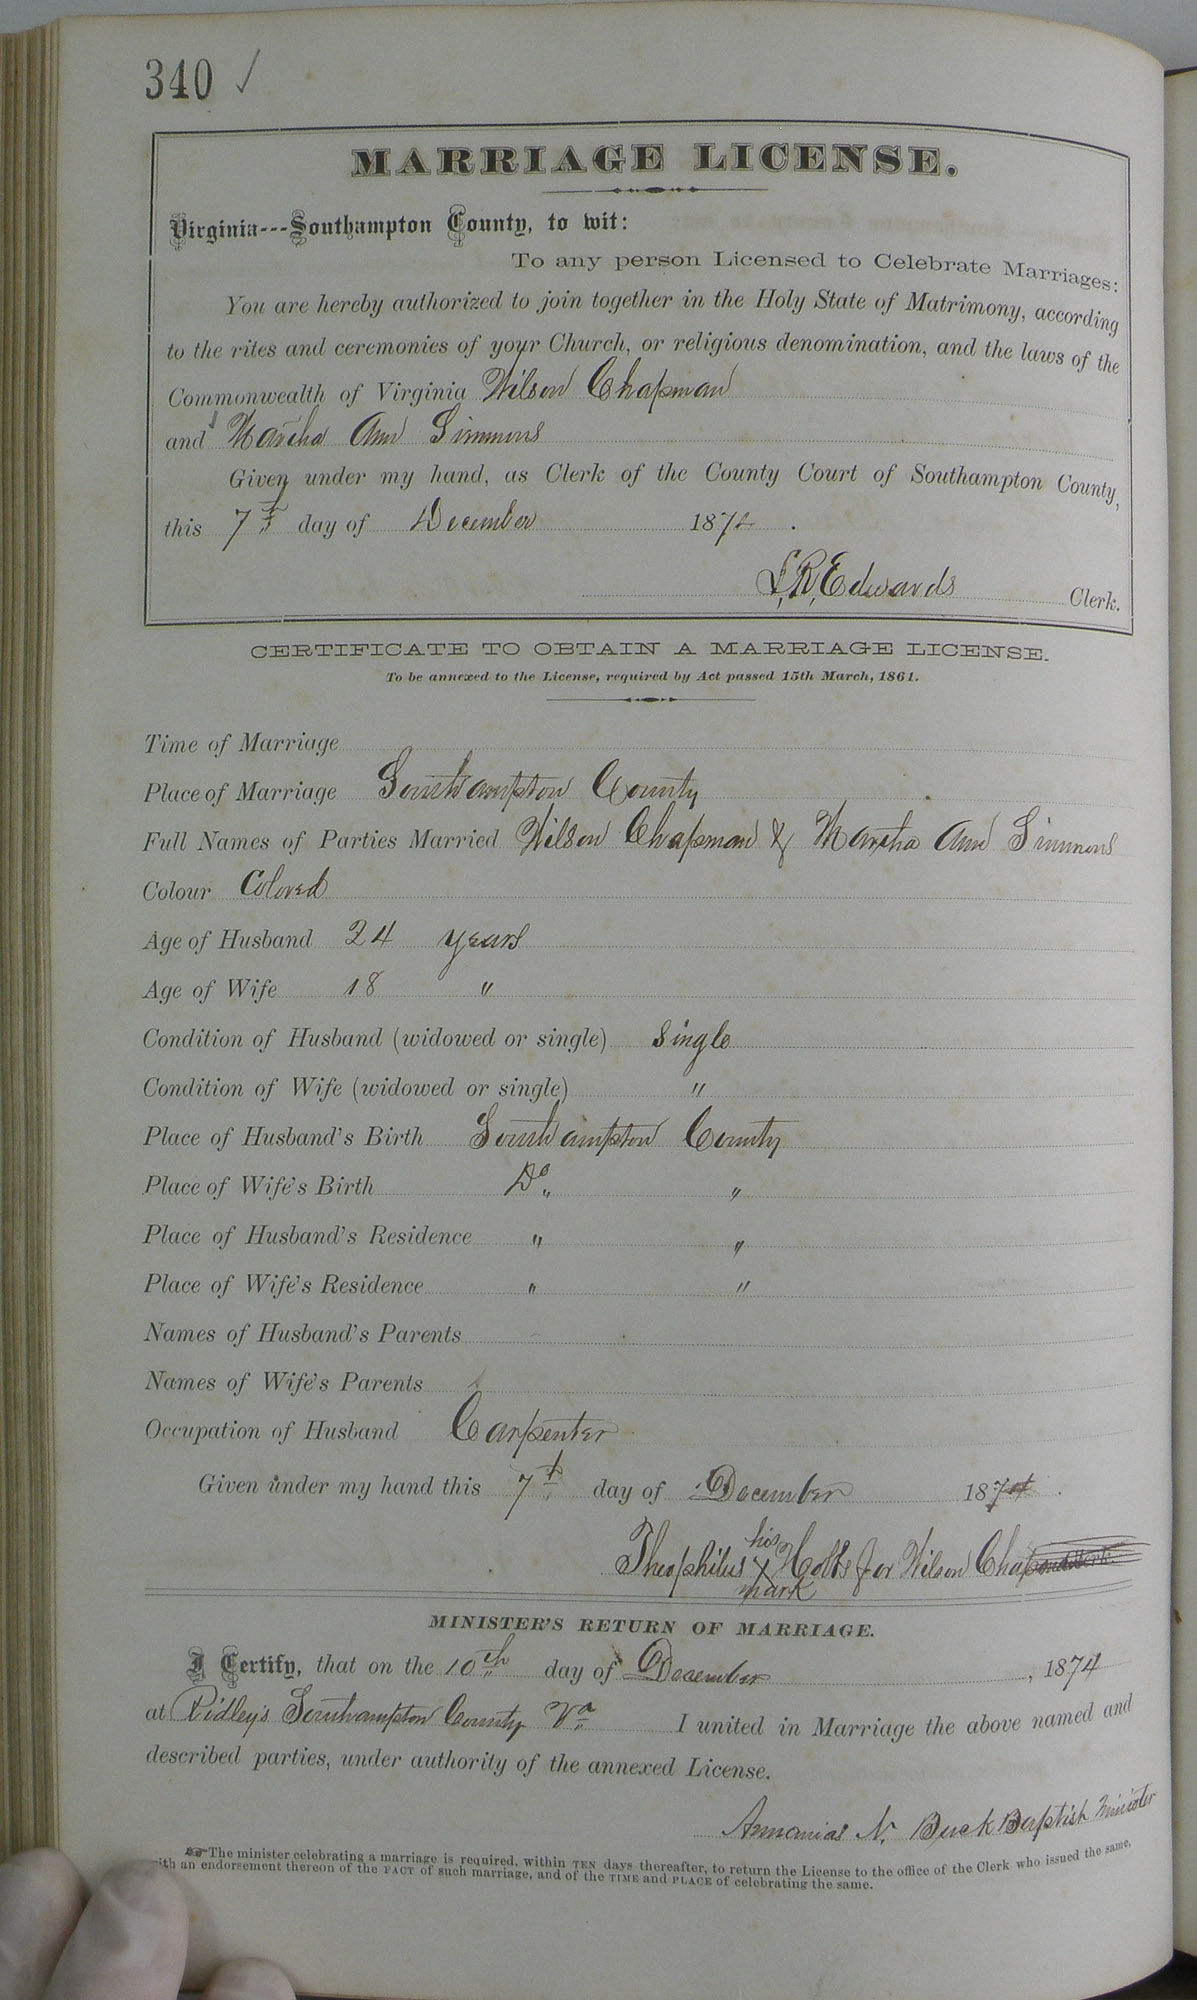 340 ✓
MARRIAGE LICENSE.
Virginia---Southampton County, to wit:
To any person Licensed to Celebrate Marriages:
You are hereby authorized to join together in the Holy State of Matrimony, according
to the rites and ceremonies of your Church, or religious denomination, and the laws of the
Commonwealth of Virginia Wilson Chapman
and Martha Ann Simmons
Given under my hand, as Clerk of the County Court of Southampton County,
this 7th day of December 1874 .
L.R. Edwards Clerk.
CERTIFICATE TO OBTAIN A MARRIAGE LICENSE.
To be annexed to the License, required by Act passed 15th March, 1861.
Time of Marriage
Place of Marriage Southampton County
Full Names of Parties Married Wilson Chapman & Martha Ann Simmons
Colour Colored
Age of Husband 24 years
Age of Wife 18 "
Condition of Husband (widowed or single) Single
Condition of Wife (widowed or single) "
Place of Husband's Birth Southampton County
Place of Wife's Birth Do "
Place of Husband's Residence " "
Place of Wife's Residence " "
Names of Husband's Parents
Names of Wife's Parents
Occupation of Husband Carpenter
Given under my hand this 7th day of December 1874 .
his
Theophilus X Holts for Wilson
mark
MINISTER'S RETURN OF MARRIAGE.
I Certify, that on the 10th day of December , 1874
at Ridley's Southampton County Va I united in Marriage the above named and
described parties, under authority of the annexed License.
N. Buck Baptist Minister
☞ The minister celebrating a marriage is required, within TEN days thereafter, to return the License to the office of the Clerk who issued the same,
ith an endorsement thereon of the FACT of such marriage, and of the TIME and PLACE of celebrating the same.